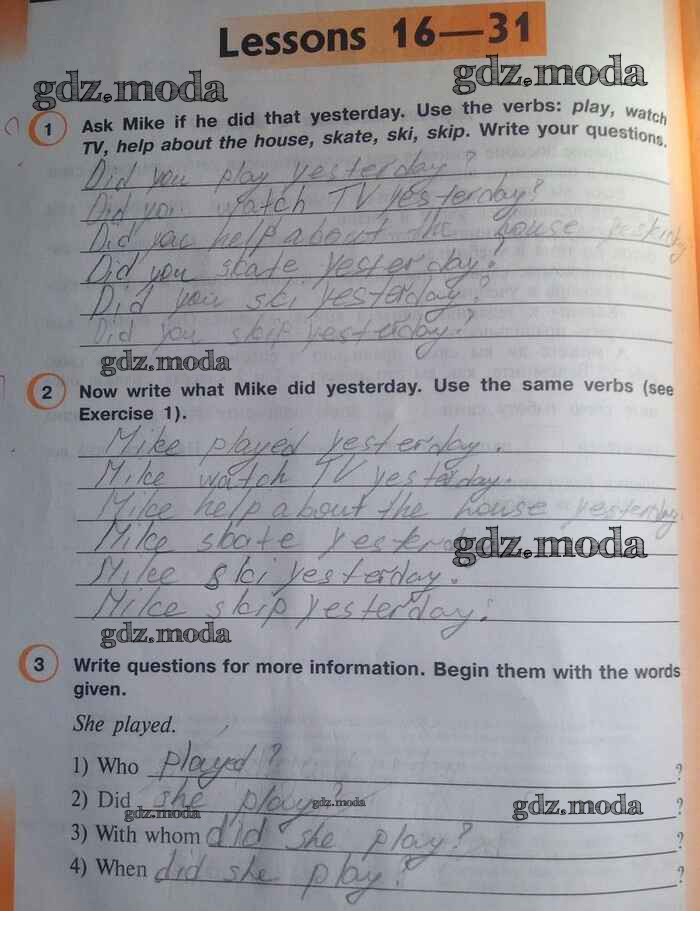 Lessons 16—31
gdz.moda gdz.moda
1 Ask Mike if he did that yesterday. Use the verbs: play, watch
TV, help about the house, skate, ski, skip. Write your questions.
Did you play yesterday?
Did you watch TV yesterday?
Did you help about the house
Did you skate yesterday?
Did you ski yesterday?
Did you skip yesterday?
gdz.moda
2 Now write what Mike did yesterday. Use the same verbs (see
Exercise 1).
Mike played yesterday.
Mike watch TV yesterday.
Mike help about the house yesterday.
Mike skate
gdz.moda
Mike ski yesterday.
Mike skip yesterday.
gdz.moda
3 Write questions for more information. Begin them with the words
given.
She played.
1) Who played? ?
2) Did she play? ?
gdz.moda gdz.moda gdz.moda
3) With whom did she play? ?
4) When did she play? ?